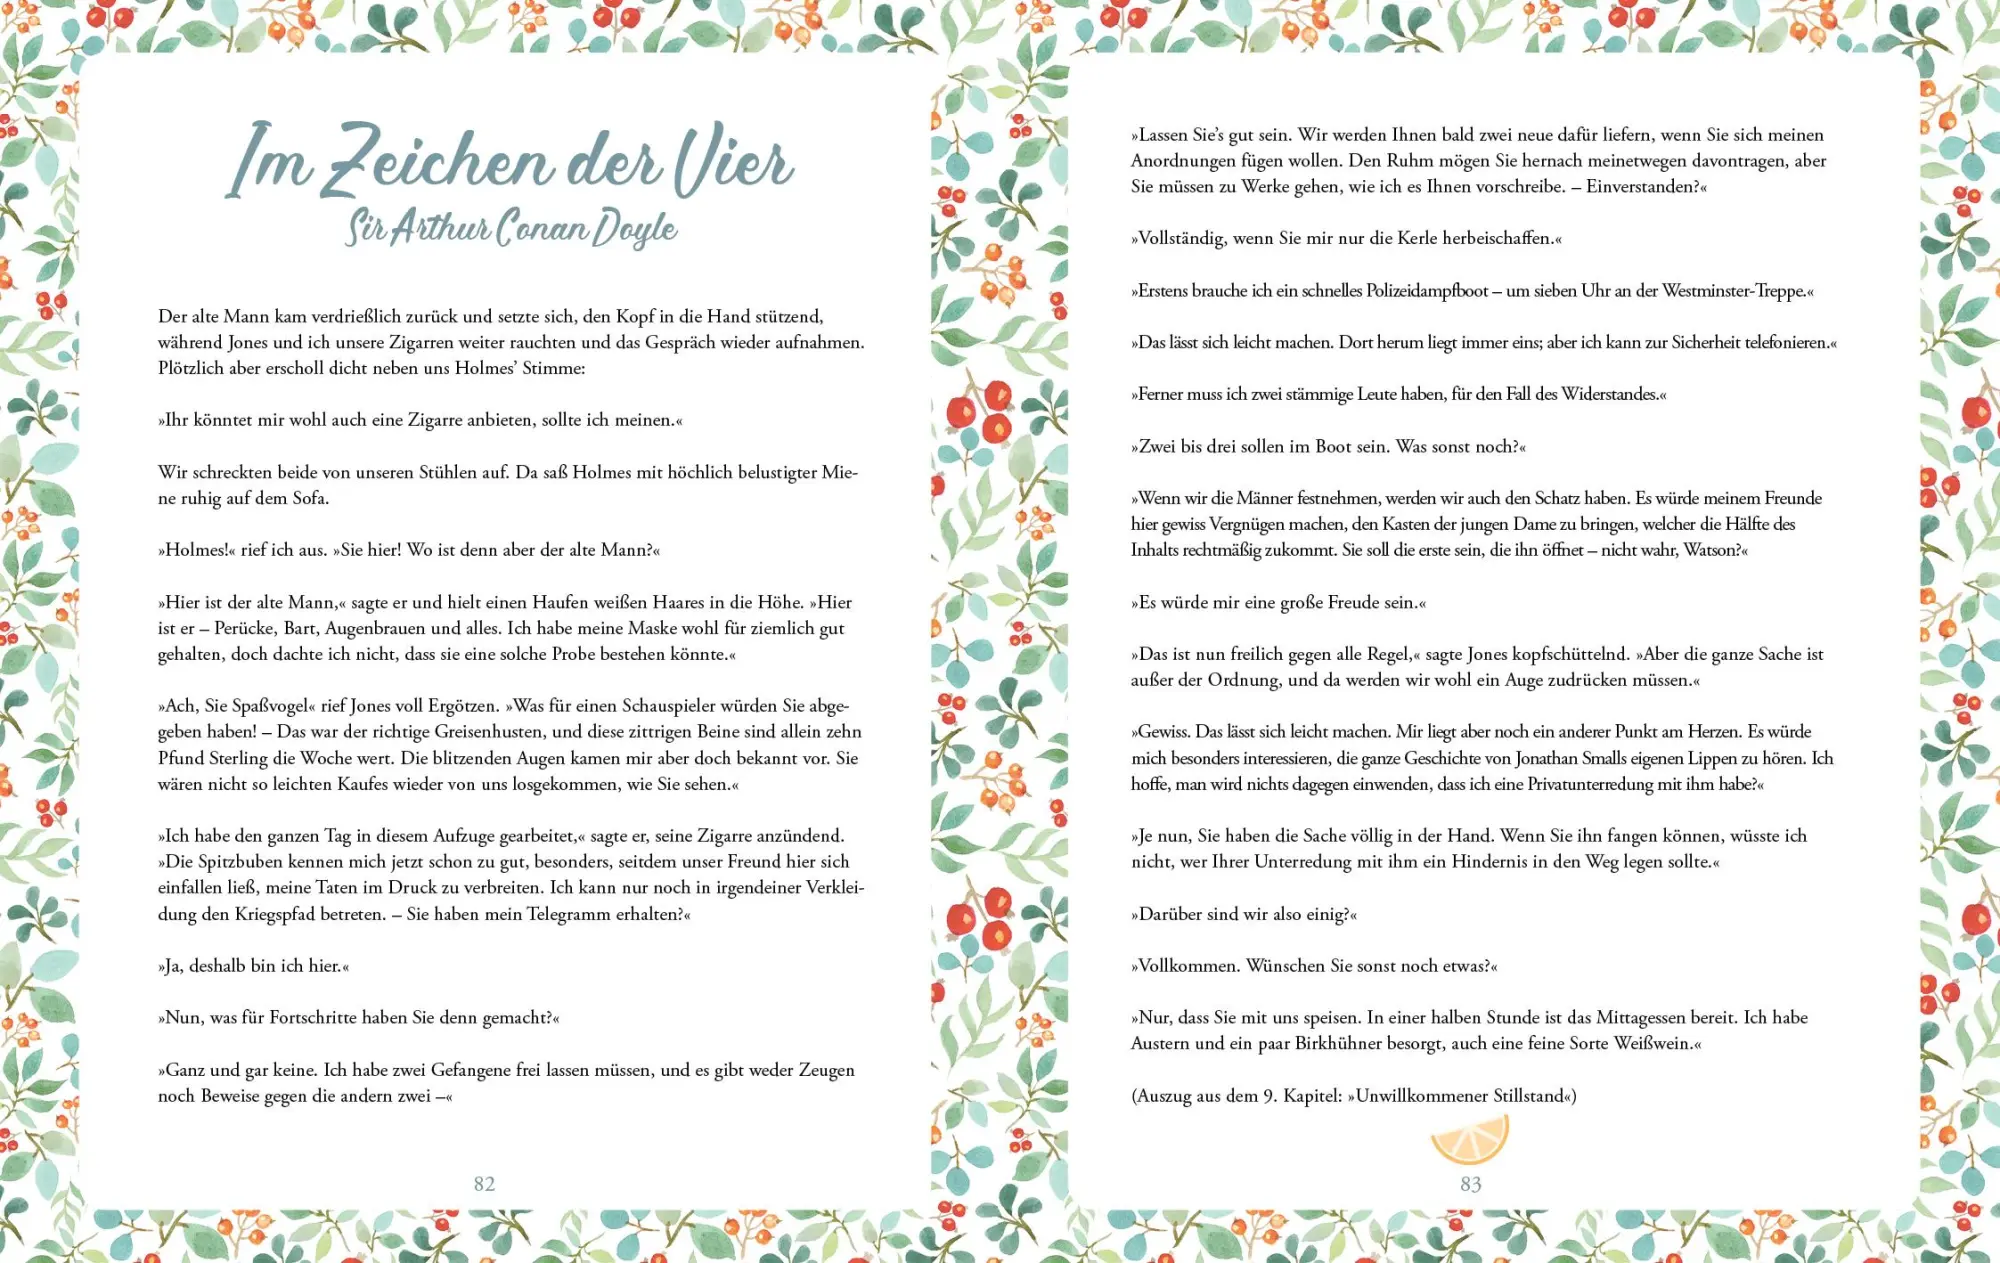 Im Zeichen der Vier
Sir Arthur Conan Doyle
Der alte Mann kam verdrießlich zurück und setzte sich, den Kopf in die Hand stützend,
während Jones und ich unsere Zigarren weiter rauchten und das Gespräch wieder aufnahmen.
Plötzlich aber erscholl dicht neben uns Holmes’ Stimme:
»Ihr könntet mir wohl auch eine Zigarre anbieten, sollte ich meinen.«
Wir schreckten beide von unseren Stühlen auf. Da saß Holmes mit höchlich belustigter Mie-
ne ruhig auf dem Sofa.
»Holmes!« rief ich aus. »Sie hier! Wo ist denn aber der alte Mann?«
»Hier ist der alte Mann,« sagte er und hielt einen Haufen weißen Haares in die Höhe. »Hier
ist er – Perücke, Bart, Augenbrauen und alles. Ich habe meine Maske wohl für ziemlich gut
gehalten, doch dachte ich nicht, dass sie eine solche Probe bestehen könnte.«
»Ach, Sie Spaßvogel« rief Jones voll Ergötzen. »Was für einen Schauspieler würden Sie abge-
geben haben! – Das war der richtige Greisenhusten, und diese zittrigen Beine sind allein zehn
Pfund Sterling die Woche wert. Die blitzenden Augen kamen mir aber doch bekannt vor. Sie
wären nicht so leichten Kaufes wieder von uns losgekommen, wie Sie sehen.«
»Ich habe den ganzen Tag in diesem Aufzuge gearbeitet,« sagte er, seine Zigarre anzündend.
»Die Spitzbuben kennen mich jetzt schon zu gut, besonders, seitdem unser Freund hier sich
einfallen ließ, meine Taten im Druck zu verbreiten. Ich kann nur noch in irgendeiner Verklei-
dung den Kriegspfad betreten. – Sie haben mein Telegramm erhalten?«
»Ja, deshalb bin ich hier.«
»Nun, was für Fortschritte haben Sie denn gemacht?«
»Ganz und gar keine. Ich habe zwei Gefangene frei lassen müssen, und es gibt weder Zeugen
noch Beweise gegen die andern zwei –«
82
»Lassen Sie’s gut sein. Wir werden Ihnen bald zwei neue dafür liefern, wenn Sie sich meinen
Anordnungen fügen wollen. Den Ruhm mögen Sie hernach meinetwegen davontragen, aber
Sie müssen zu Werke gehen, wie ich es Ihnen vorschreibe. – Einverstanden?«
»Vollständig, wenn Sie mir nur die Kerle herbeischaffen.«
»Erstens brauche ich ein schnelles Polizeidampfboot – um sieben Uhr an der Westminster-Treppe.«
»Das lässt sich leicht machen. Dort herum liegt immer eins; aber ich kann zur Sicherheit telefonieren.«
»Ferner muss ich zwei stämmige Leute haben, für den Fall des Widerstandes.«
»Zwei bis drei sollen im Boot sein. Was sonst noch?«
»Wenn wir die Männer festnehmen, werden wir auch den Schatz haben. Es würde meinem Freunde
hier gewiss Vergnügen machen, den Kasten der jungen Dame zu bringen, welcher die Hälfte des
Inhalts rechtmäßig zukommt. Sie soll die erste sein, die ihn öffnet – nicht wahr, Watson?«
»Es würde mir eine große Freude sein.«
»Das ist nun freilich gegen alle Regel,« sagte Jones kopfschüttelnd. »Aber die ganze Sache ist
außer der Ordnung, und da werden wir wohl ein Auge zudrücken müssen.«
»Gewiss. Das lässt sich leicht machen. Mir liegt aber noch ein anderer Punkt am Herzen. Es würde
mich besonders interessieren, die ganze Geschichte von Jonathan Smalls eigenen Lippen zu hören. Ich
hoffe, man wird nichts dagegen einwenden, dass ich eine Privatunterredung mit ihm habe?«
»Je nun, Sie haben die Sache völlig in der Hand. Wenn Sie ihn fangen können, wüsste ich
nicht, wer Ihrer Unterredung mit ihm ein Hindernis in den Weg legen sollte.«
»Darüber sind wir also einig?«
»Vollkommen. Wünschen Sie sonst noch etwas?«
»Nur, dass Sie mit uns speisen. In einer halben Stunde ist das Mittagessen bereit. Ich habe
Austern und ein paar Birkhühner besorgt, auch eine feine Sorte Weißwein.«
(Auszug aus dem 9. Kapitel: »Unwillkommener Stillstand«)
83